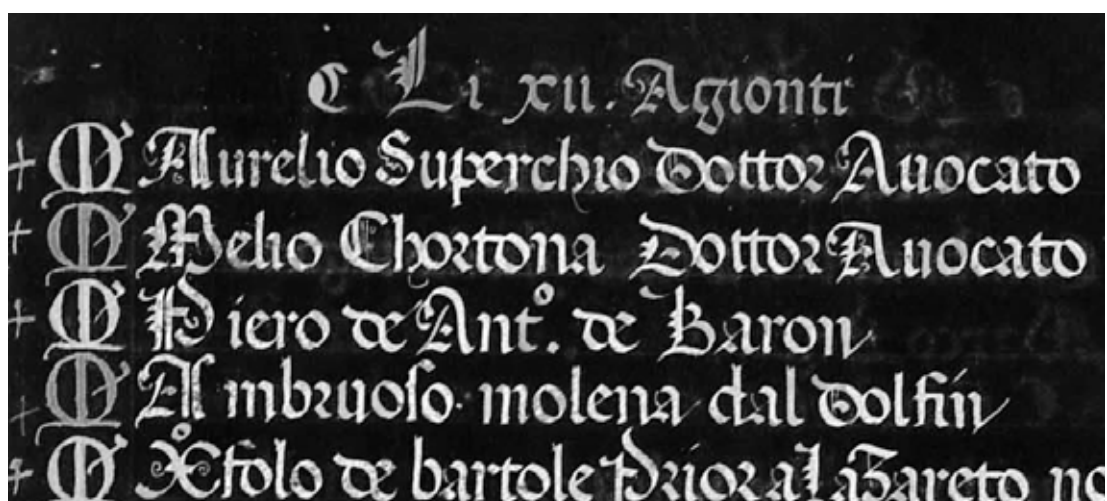 C Li xii. Agionti
+ M Aurelio Superchio Dottor Auocato
+ M Melio Chortona Dottor Auocato
+ M Piero de Ant.º de Baron
+ M Ambruoſo molena dal Dolfin
+ M Xºfolo de bartole Prior al laZareto no